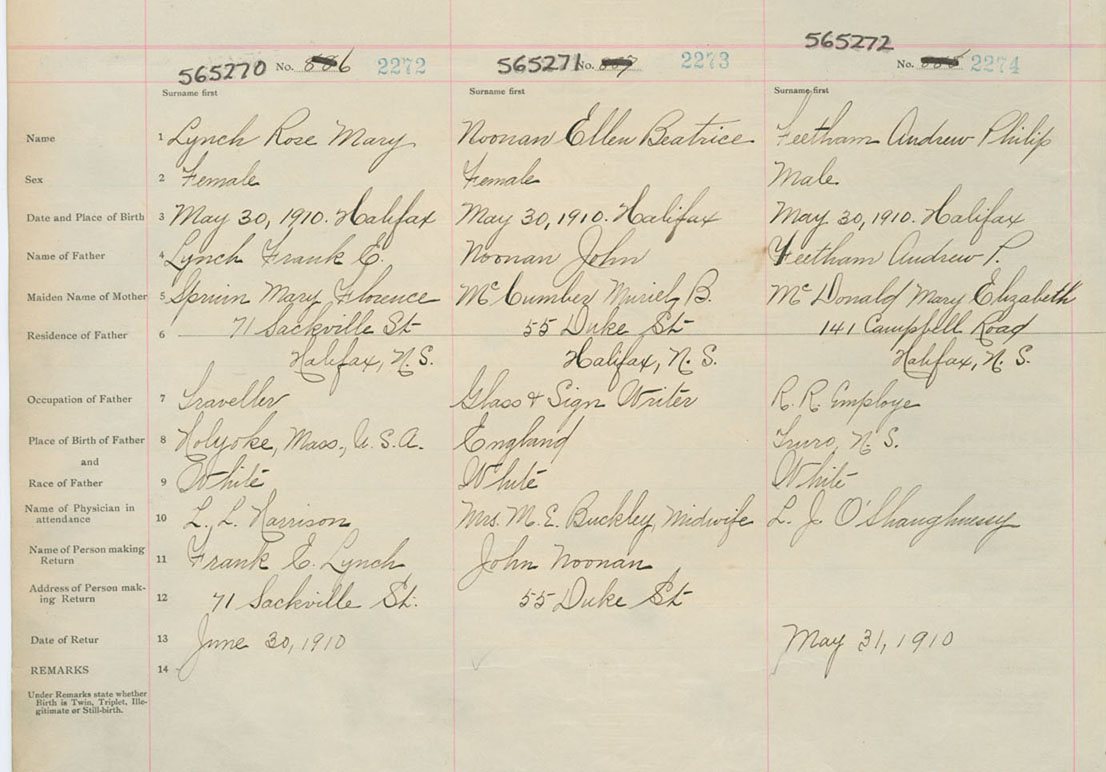 565270 No. 2272 565271 No. 2273 565272 No. 2274
Surname first Surname first Surname first
Name 1 Lynch Rose Mary Noonan Ellen Beatrice Feetham Andrew Philip
Sex 2 Female Female Male
Date and Place of Birth 3 May 30, 1910. Halifax May 30, 1910. Halifax May 30, 1910. Halifax
Name of Father 4 Lynch Frank E. Noonan John Feetham Andrew P.
Maiden Name of Mother 5 Mary Florence McCumber Muriel B. McDonald Mary Elizabeth
Residence of Father 6 71 Sackville St 55 Duke St 141 Campbell Road
Halifax, N.S. Halifax, N.S. Halifax, N.S.
Occupation of Father 7 Traveller Glass & Sign Writer R.R. Employe
Place of Birth of Father 8 Holyoke, Mass., U.S.A. England Truro, N.S.
and
Race of Father 9 White White White
Name of Physician in
attendance 10 L. L. Harrison Mrs. M. E. Buckley, Midwife L. J. O'Shaughnessy
Name of Person making
Return 11 Frank E. Lynch John Noonan
Address of Person mak-
ing Return 12 71 Sackville St. 55 Duke St
Date of Retur 13 June 30, 1910 May 31, 1910
REMARKS 14
Under Remarks state whether
Birth is Twin, Triplet, Ille-
gitimate or Still-birth.